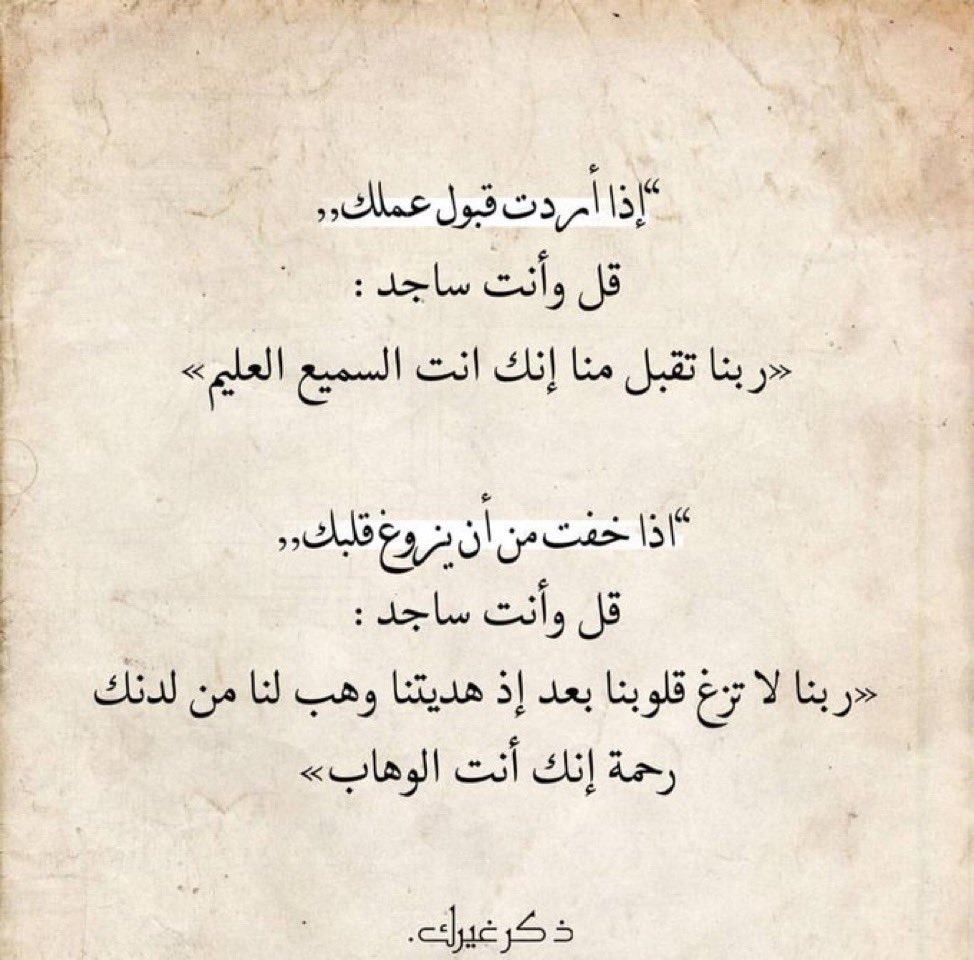 “إذا أردت قبول عملك,,
قل وأنت ساجد :
«ربنا تقبل منا إنك انت السميع العليم»
“اذا خفت من أن يزوغ قلبك,,
قل وأنت ساجد :
«ربنا لا تزغ قلوبنا بعد إذ هديتنا وهب لنا من لدنك
رحمة إنك أنت الوهاب»
ذكر غيرك.